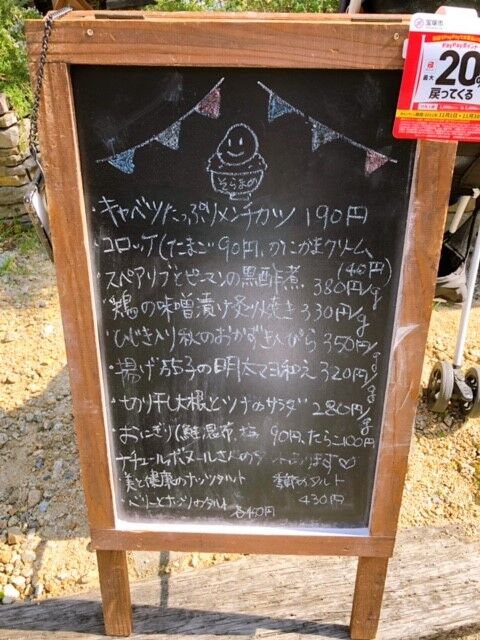 宝塚市
PayPayポイント
最大
20%
戻ってくる
そらまめ
・キャベツたっぷりメンチカツ 190円
・コロッケ(たまご 90円、かにかまクリーム
140円)
・スペアリブとピーマンの黒酢煮 380円/g
・鶏の味噌漬け炙り焼き 330円/g
・ひじき入り秋のおかずきんぴら 350円/g
・揚げ茄子の明太マヨ和え 320円/g
・切り干し大根とツナのサラダ 280円/g
・おにぎり(鮭、昆布、塩 90円、たらこ100円
ナチュールボヌールさんのタルトあります♡
・美と健康のナッツタルト 季節のタルト
・ベリーとナッツのタルト 430円
各450円